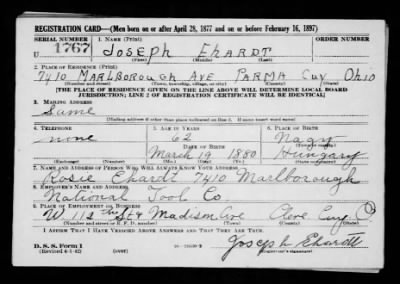 REGISTRATION CARD—(Men born on or after April 28, 1877 and on or before February 16, 1897)
SERIAL NUMBER 1. NAME (Print) ORDER NUMBER
U 1767 JOSEPH EHARDT
2. PLACE OF RESIDENCE (Print)
7410 MARLBOROUGH AVE PARMA CUY OHIO
(Number and street) (Town, township, village, or city) (County) (State)
[THE PLACE OF RESIDENCE GIVEN ON THE LINE ABOVE WILL DETERMINE LOCAL BOARD
JURISDICTION; LINE 2 OF REGISTRATION CERTIFICATE WILL BE IDENTICAL]
3. MAILING ADDRESS
Same
[Mailing address if other than place indicated on line 2. If same insert word same]
4. TELEPHONE 5. AGE IN YEARS 6. PLACE OF BIRTH
none 62 Nagy
DATE OF BIRTH (Town or county)
March 19 1880 Hungary
(Exchange) (Number) (Mo.) (Day) (Yr.) (State or country)
7. NAME AND ADDRESS OF PERSON WHO WILL ALWAYS KNOW YOUR ADDRESS
Rosie Ehardt 7410 Marlborough
8. EMPLOYER'S NAME AND ADDRESS
National Tool Co.
9. PLACE OF EMPLOYMENT OR BUSINESS
W 112 th St & Madison Ave Cleve Cuy. O
(Number and street or R. F. D. number) (Town) (County) (State)
I AFFIRM THAT I HAVE VERIFIED ABOVE ANSWERS AND THAT THEY ARE TRUE.
D. S. S. Form 1
(Revised 4-1-42) (over)
Joseph Ehardt
(Registrant's signature)